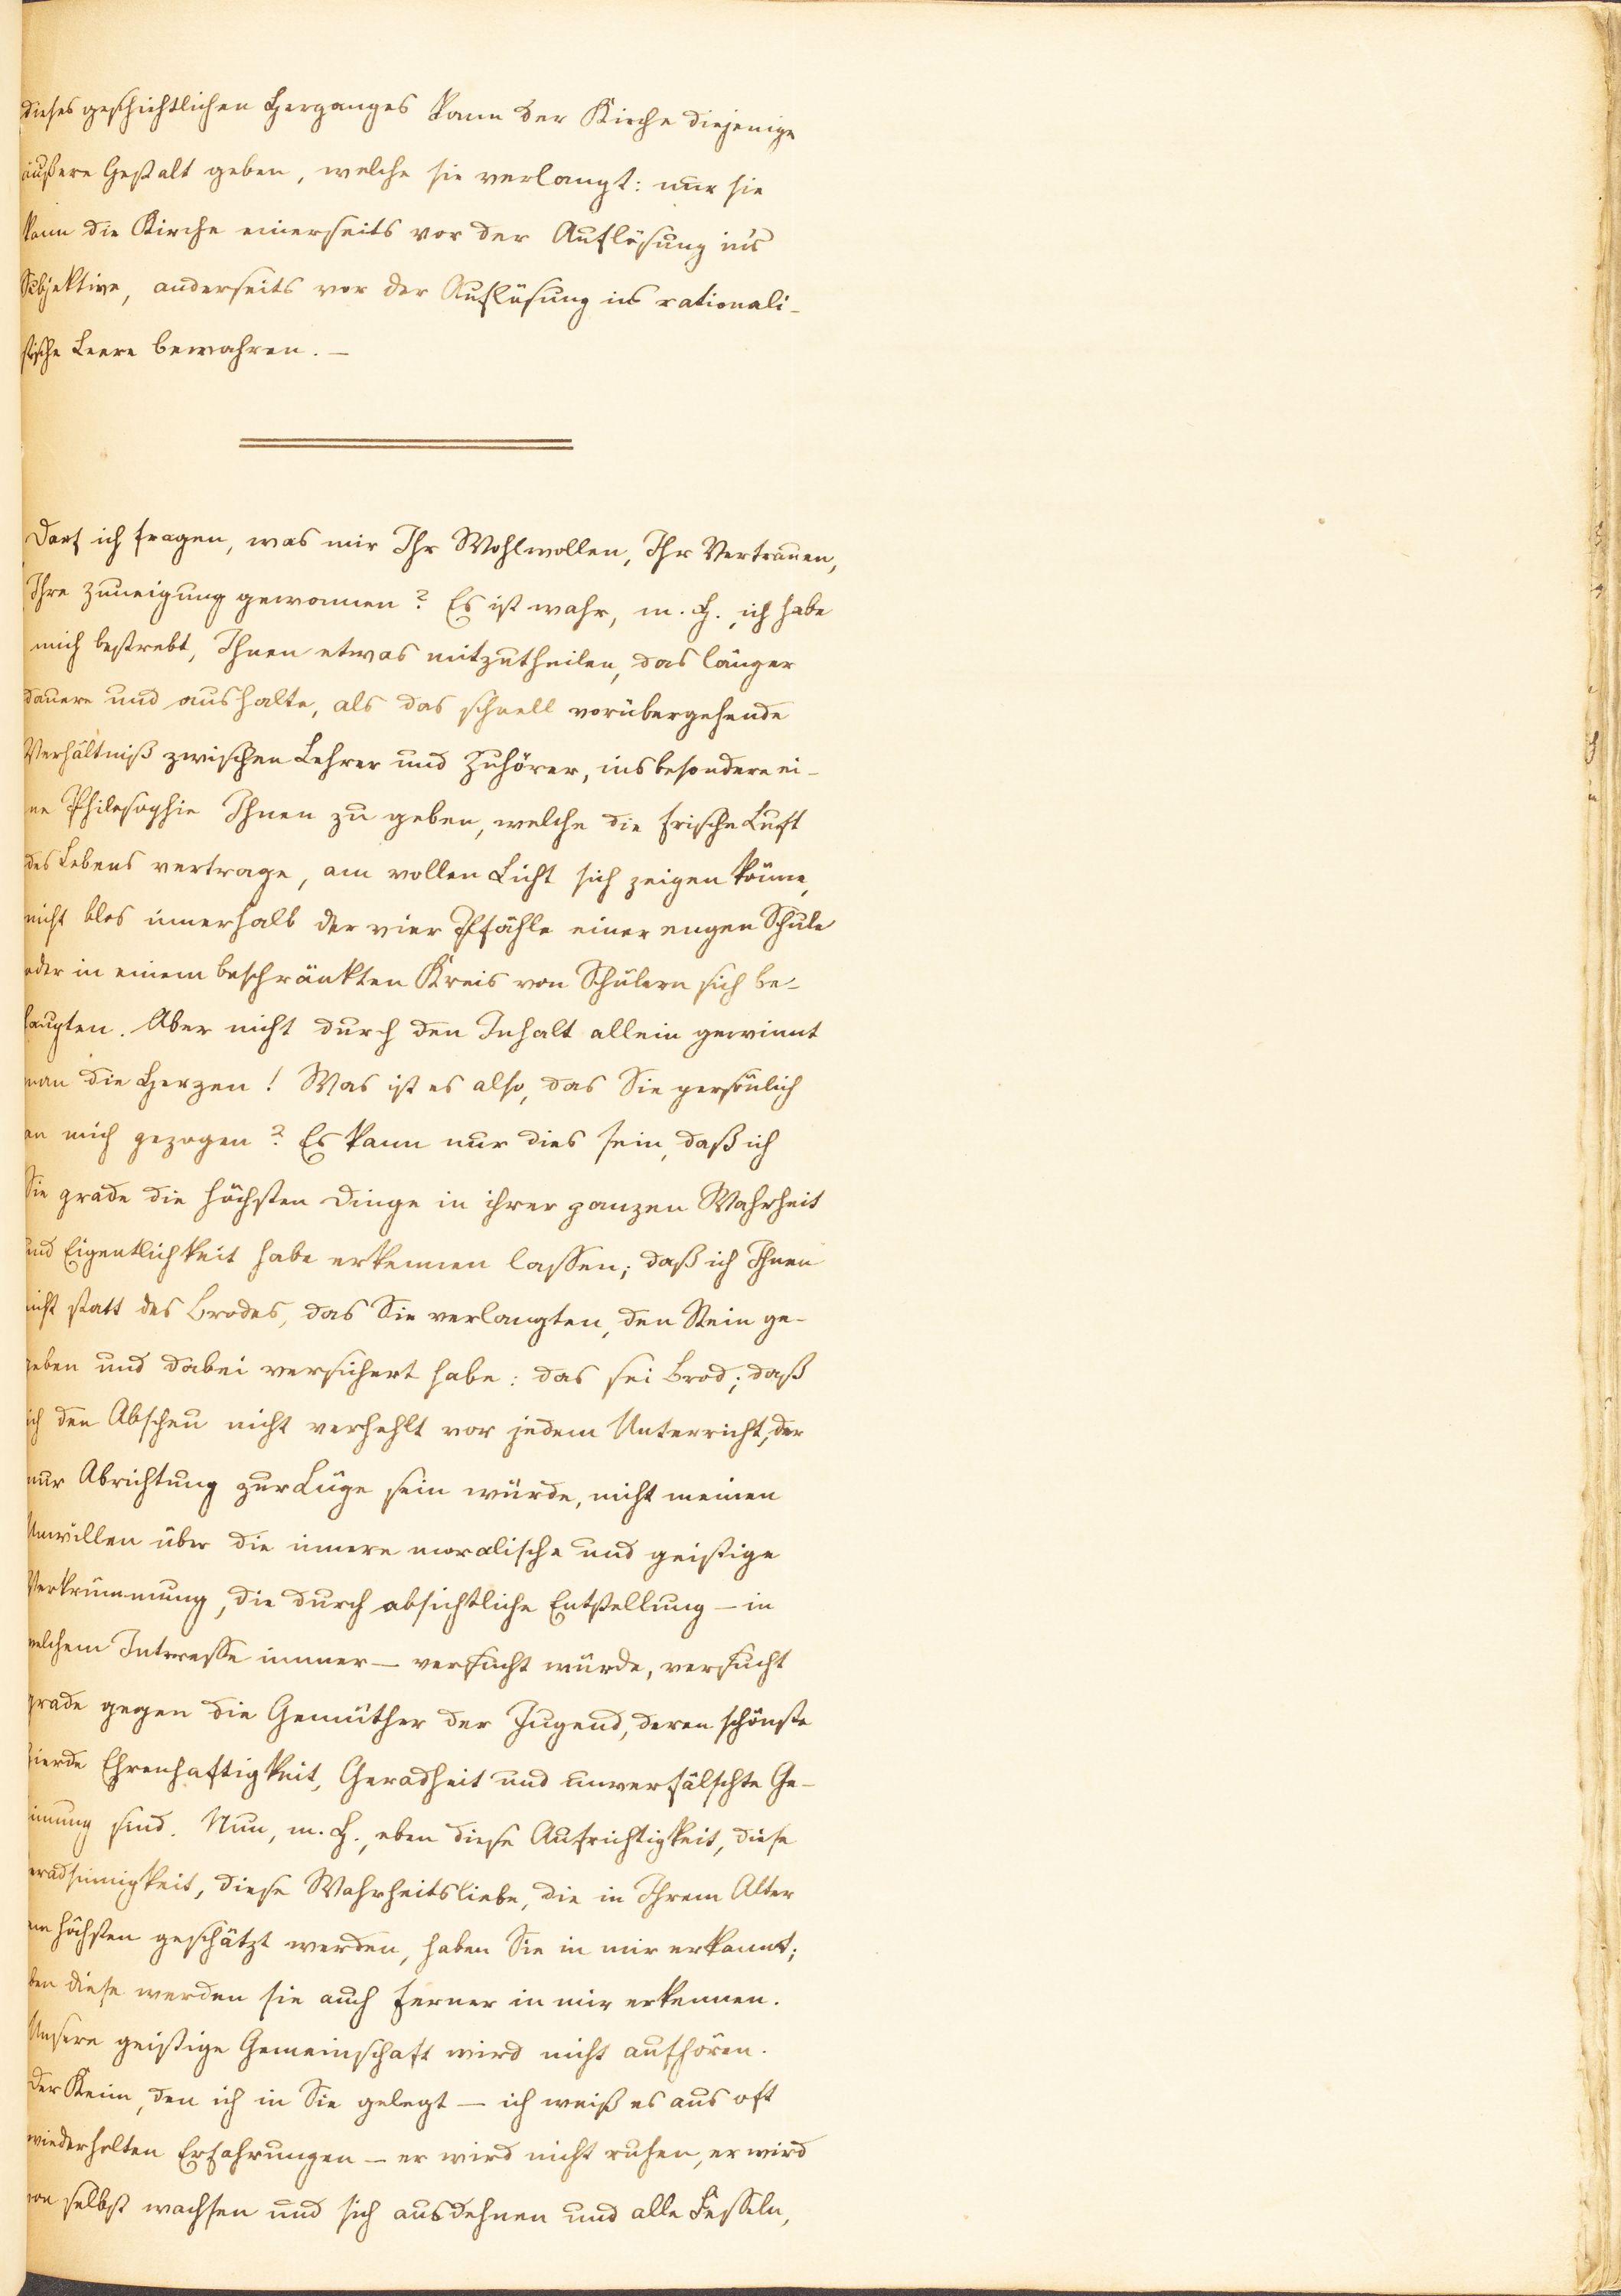 dieses geschichtlichen Herganges kann der Kirche diejenige
äußere Gestalt geben, welche sie verlangt: nur sie
kann die Kirche einerseits vor der Auflösung in's
Subjektive, anderseits vor der Auflösung ins rationali-
stische Leere bewahren. —
Darf ich fragen, was mir Ihr Wohlwollen, Ihr Vertrauen,
Ihre Zuneigung gewonnen? Es ist wahr, m. H., ich habe
mich bestrebt, Ihnen etwas mitzutheilen, das länger
dauere und aushalte, als das schnell vorübergehende
Verhältniß zwischen Lehrer und Zuhörer, insbesondere ei-
ne Philosophie Ihnen zu geben, welche die frische Luft
des Lebens vertrage, am vollen Licht sich zeigen könne,
nicht blos innerhalb der vier Pfähle einer engen Schule
oder in einem beschränkten Kreis von Schülern sich be-
haupten. Aber nicht durch den Inhalt allein gewinnt
man die Herzen! Was ist es also, das Sie persönlich
an mich gezogen? Es kann nur dies sein, daß ich
Sie grade die höchsten Dinge in ihrer ganzen Wahrheit
und Eigentlichkeit habe erkennen lassen; daß ich Ihnen
nicht statt des Brodes, das Sie verlangten, den Stein ge-
geben und dabei versichert habe: das sei Brod; daß
ich den Abscheu nicht verhehlt vor jedem Unterricht, der
nur Abrichtung zur Lüge sein würde, nicht meinen
Unwillen über die innere moralische und geistige
Verkrümmung, die durch absichtliche Entstellung — in
welchem Interesse immer — versucht würde, versucht
grade gegen die Gemüther der Jugend, deren schönste
Zierde Ehrenhaftigkeit, Geradheit und unverfälschte Ge-
sinnung sind. Nun, m. H., eben diese Aufrichtigkeit, diese
Geradsinnigkeit, diese Wahrheitsliebe, die in Ihrem Alter
am höchsten geschätzt werden, haben Sie in mir erkannt;
eben diese werden sie auch ferner in mir erkennen.
Unsere geistige Gemeinschaft wird nicht aufhören.
Der Keim, den ich in Sie gelegt — ich weiß es aus oft
wiederholten Erfahrungen — er wird nicht ruhen, er wird
von selbst wachsen und sich ausdehnen und alle Fesseln,